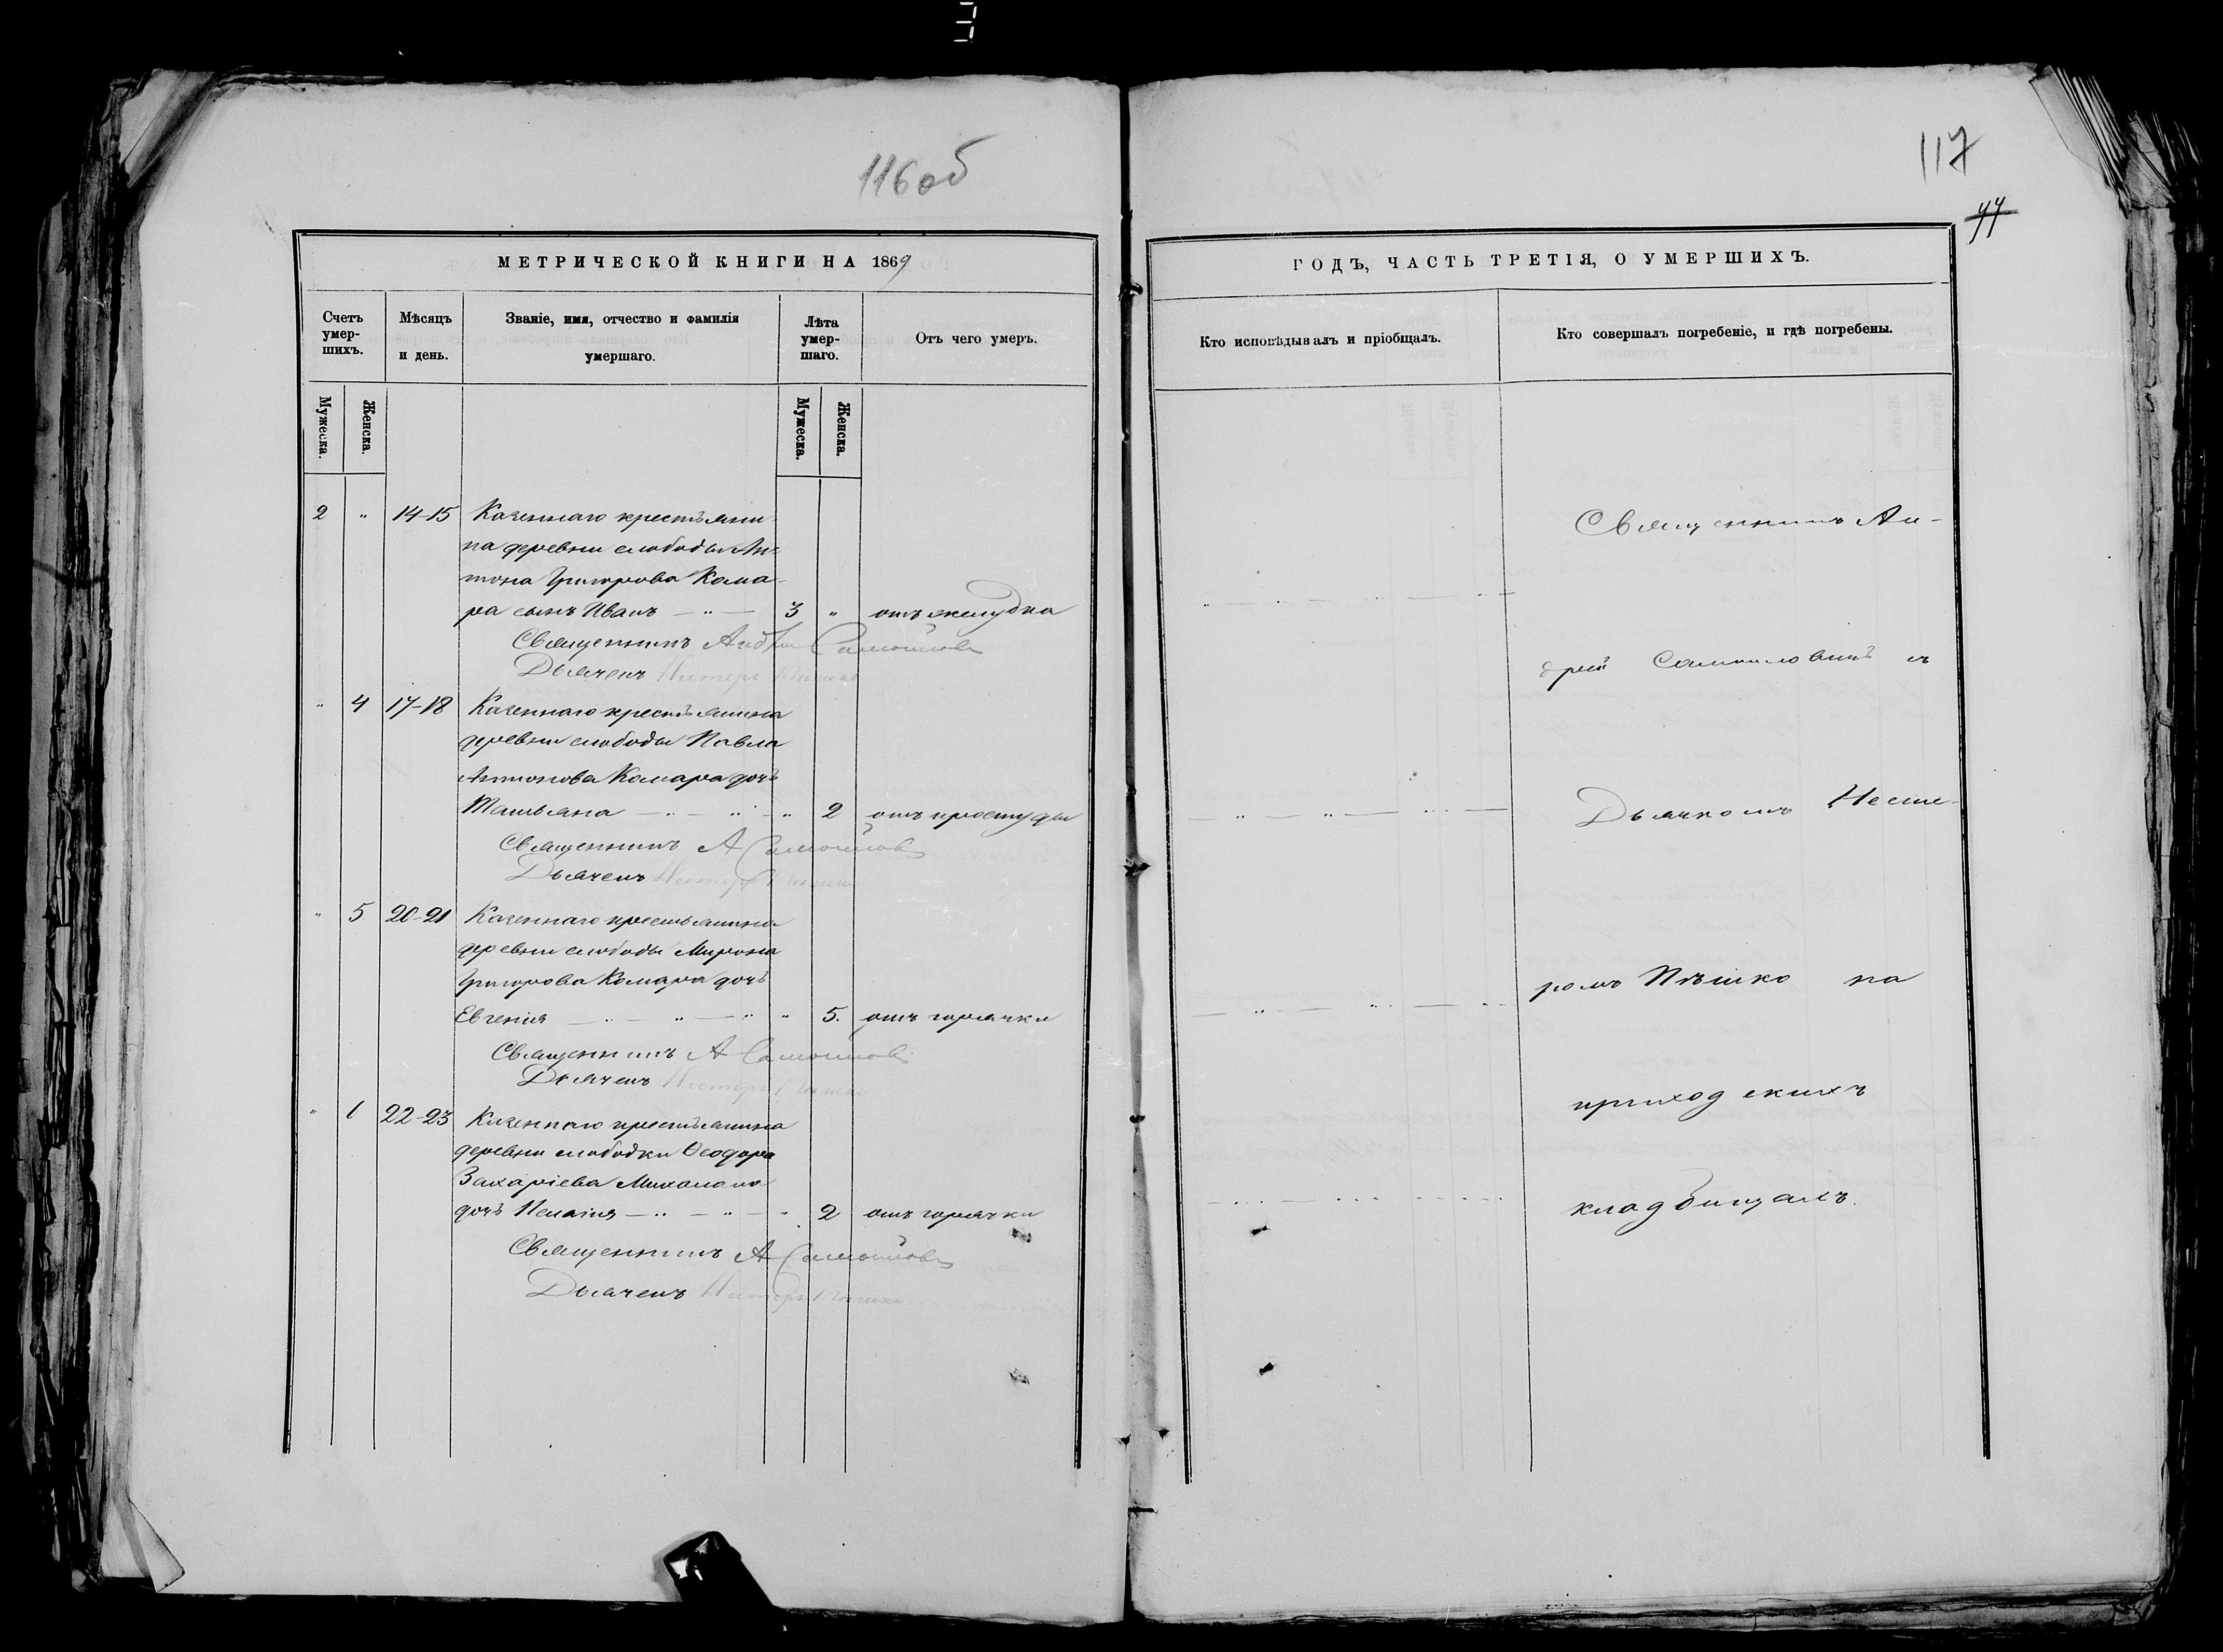 116 об
117
77
МЕТРИЧЕСКОЙ КНИГИ НА 1869
ГОДЪ, ЧАСТЬ ТРЕТІЯ, О УМЕРШИХЪ.
Счетъ умер-шихъ.
Мѣсяцъ и день.
Званіе, имя, отчество и фамилія умершаго.
Лѣта умер-шаго.
Отъ чего умеръ.
Кто исповѣдывалъ и пріобщалъ.
Кто совершалъ погребеніе, и гдѣ погребены.
Мужеска.
Женска.
Мужеска.
Женска.
2 " 14-15 Казеннаго крестьяни-
на деревни слободы Ан-
тона Григорова Кома-
ра сынъ Иванъ — " — 3 " отъ желудка
Священникъ Андрей Самойлов
Дьячекъ Нестеръ
" 4 17-18 Казеннаго крестьянина
деревни слободы Павла
Антонова Комара дочь
Татьяна — " — " — " 2 отъ простуды
Священникъ А Самойлов
Дьячекъ Нестеръ
" 5 20-21 Казеннаго крестьянина
деревни слободы Мирона
Григорова Комара дочь
Евгенія — " — " — " " 5. отъ горячки
Священникъ А Самойлов
Дьячекъ Нестеръ
" 1 22-23 Казеннаго крестьянина
деревни слободки Ѳеодора
Захаріева
дочь Пелагія — " — " — " 2 отъ горячки
Священникъ А Самойлов
Дьячекъ Нестеръ
Священникъ Ан-
дрей съ
Дьячкомъ Несте-
ромъ Пѣшко на
приходскихъ
кладбищахъ.